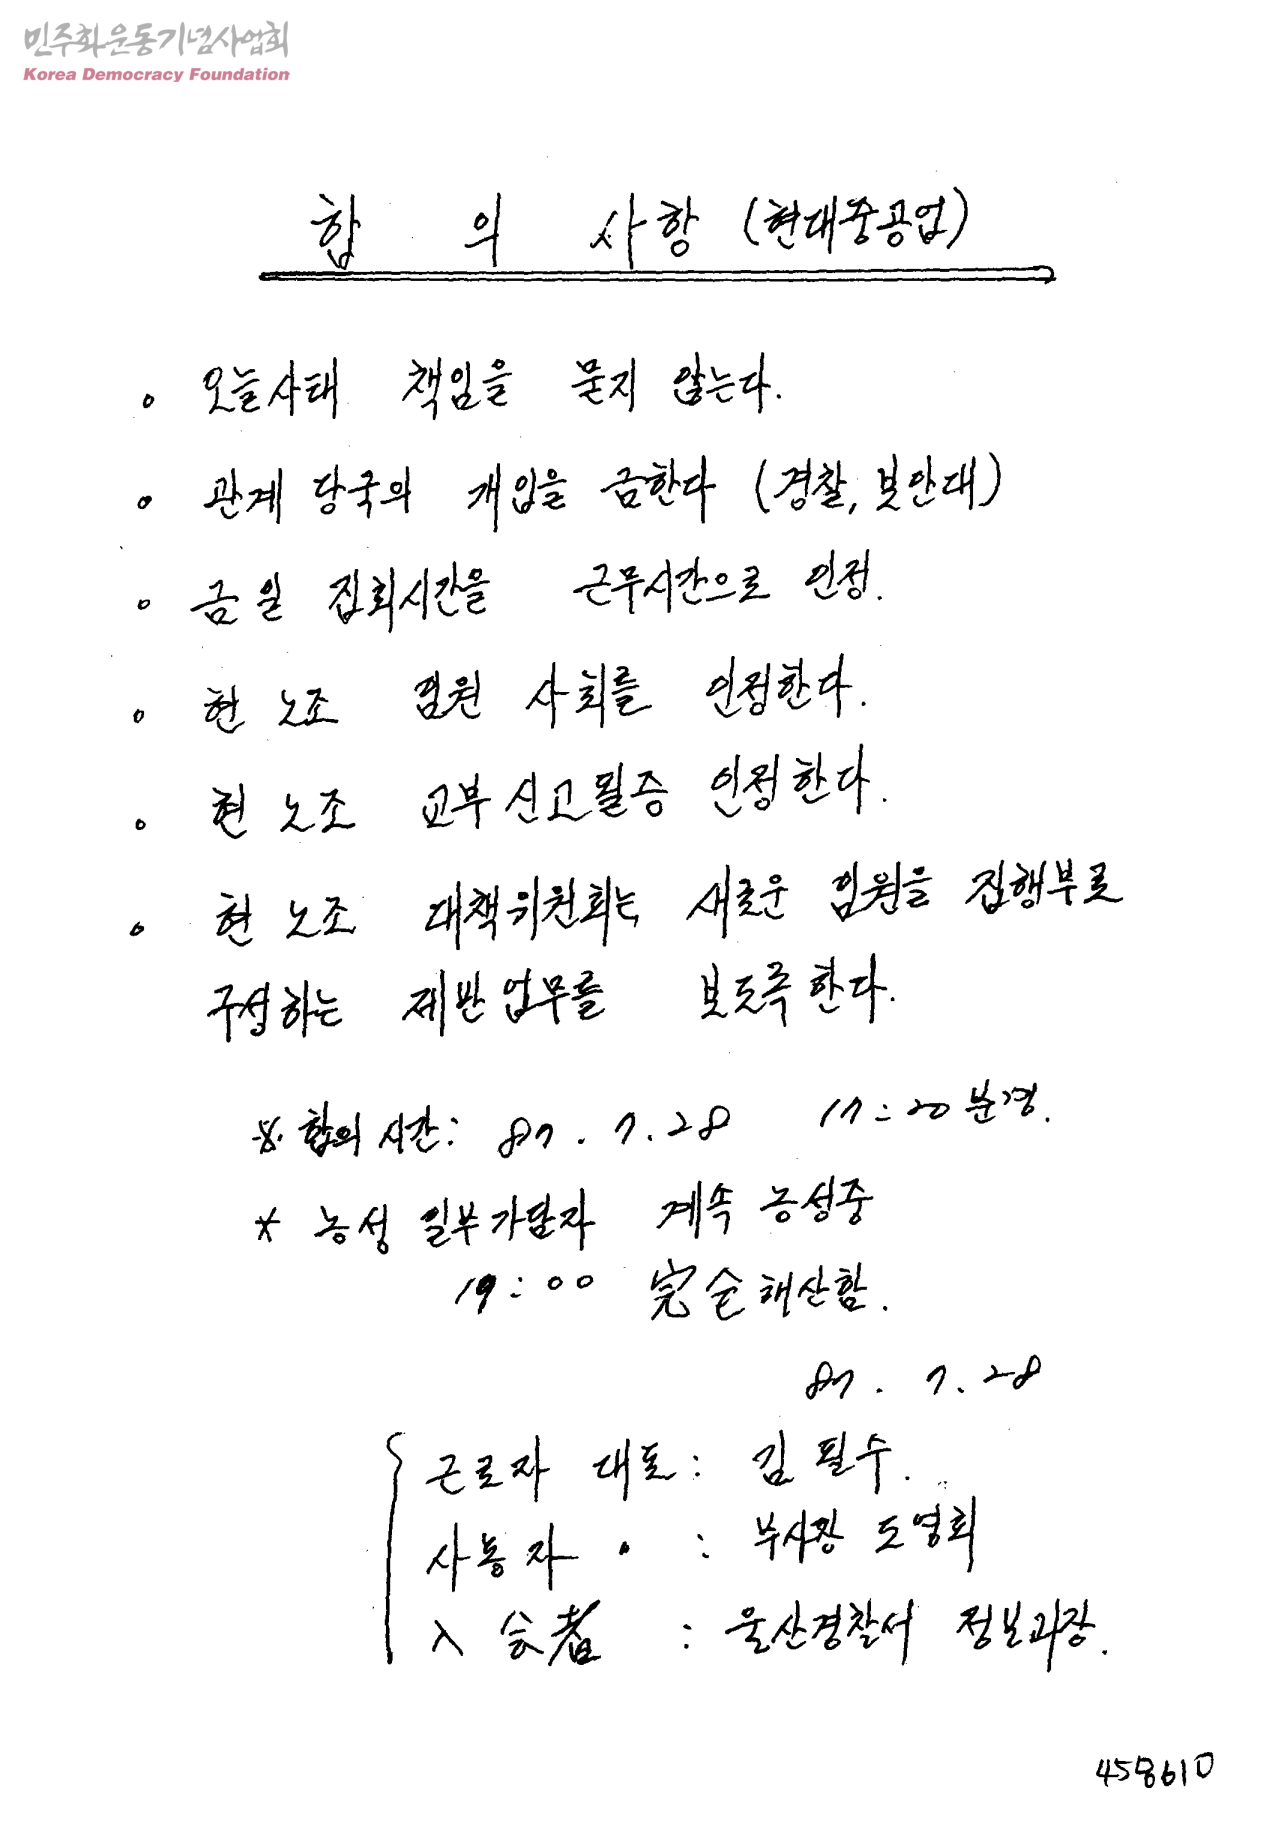 민주화운동기념사업회
Korea Democracy Foundation
합 의 사항 (현대중공업)
o 오늘사태 책임을 묻지 않는다.
o 관계 당국의 개입을 금한다 (경찰, 보안대)
o 금일 집회시간을 근무시간으로 인정.
o 현 노조 임원 사회를 인정한다.
o 현 노조 교부신고필증 인정한다.
o 현 노조 대책위원회는 새로운 임원을 집행부로
구성하는 제반업무를 보도록한다.
※ 합의시간: 87. 7. 28 17:20분경.
* 농성 일부가담자 계속 농성중
19:00 完全해산함.
87. 7. 28
근로자 대표: 김필수.
사용자 〃 : 부사장 도영회
入会者 : 울산경찰서 정보과장.
458610